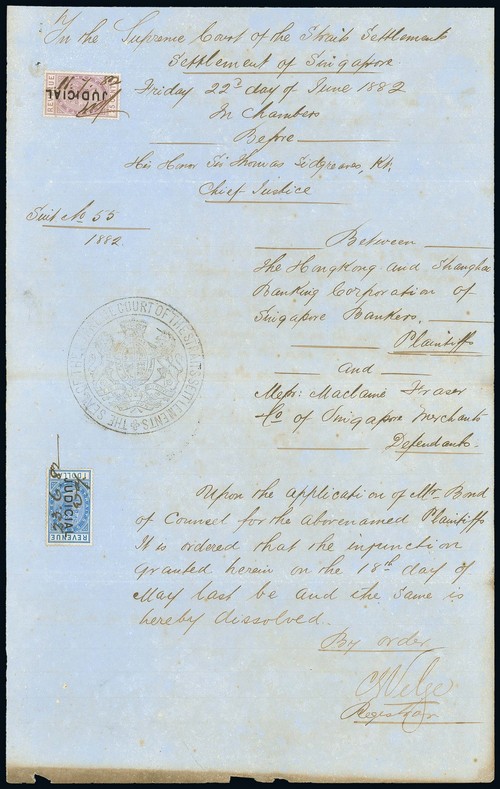 In the Supreme Court of the Straits Settlements
Settlement of Singapore
Friday 22d day of June 1882
In Chambers
Before
His Honor Sir Thomas Sidgreaves, Kt.
Chief Justice
REVENUE
JUDICIAL
Suit No 55
1882.
Between
The Hongkong and Shanghai
Banking Corporation of
Singapore Bankers.
Plaintiffs
and
Messrs: Maclaine Fraser
& Co of Singapore Merchants
Defendants.
THE SEAL OF THE SUPREME COURT OF THE STRAITS SETTLEMENTS
REVENUE
JUDICIAL
Upon the application of Mr. Bond
of Counsel for the abovenamed Plaintiffs
It is ordered that the injunction
granted herein on the 18th day of
May last be and the same is
hereby dissolved.
By order
Registrar